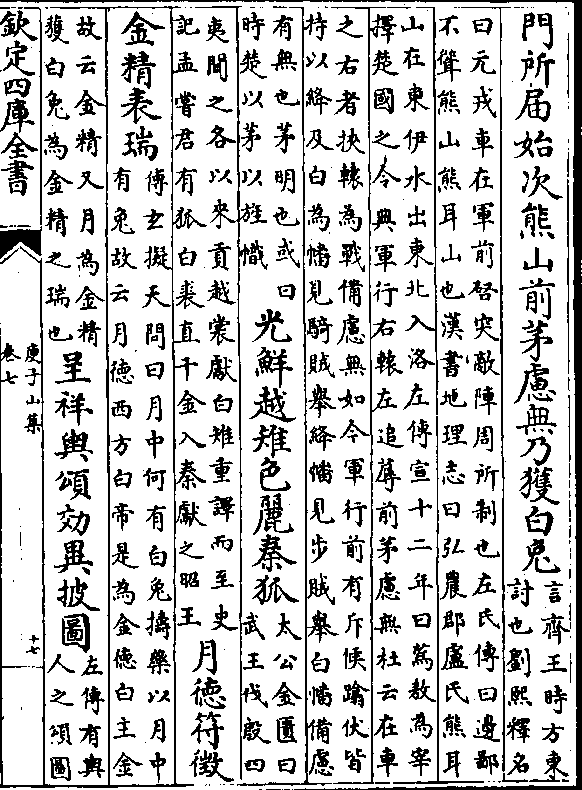 門所届始次熊山前茅慮無乃獲白兔
言齊王時方東
討也劉熙釋名
曰元戎車在軍前啓突敵陣周所制也左氏傳曰邊鄙
不聳熊山熊耳山也漢書地理志曰弘農郡盧氏熊耳
山在東伊水出東北入洛左傳宣十二年曰蒍敖為宰
擇楚國之令典軍行右轅左追蓐前茅慮無杜云在車
之右者挾轅為戰備慮無如今軍行前有斥候蹹伏皆
持以絳及白為幡見騎賊舉絳幡見步賊舉白幡備慮
有無也茅明也或曰
時楚以茅以旌幟
光鮮越雉色麗秦狐
太公金匱曰
武王伐殷四
夷聞之各以來貢越裳獻白雉重譯而至史
記孟嘗君有狐白裘直千金入秦獻之昭王
月德符徵
金精表瑞
傅玄擬天問曰月中何有白兔擣藥以月中
有兔故云月德西方白帝是為金德白主金
故云金精又月為金精
獲白兔為金精之瑞也
呈祥輿頌効異披圖
左傳有輿
人之頌圖
欽定四庫全書
庚子山集
卷七
十七